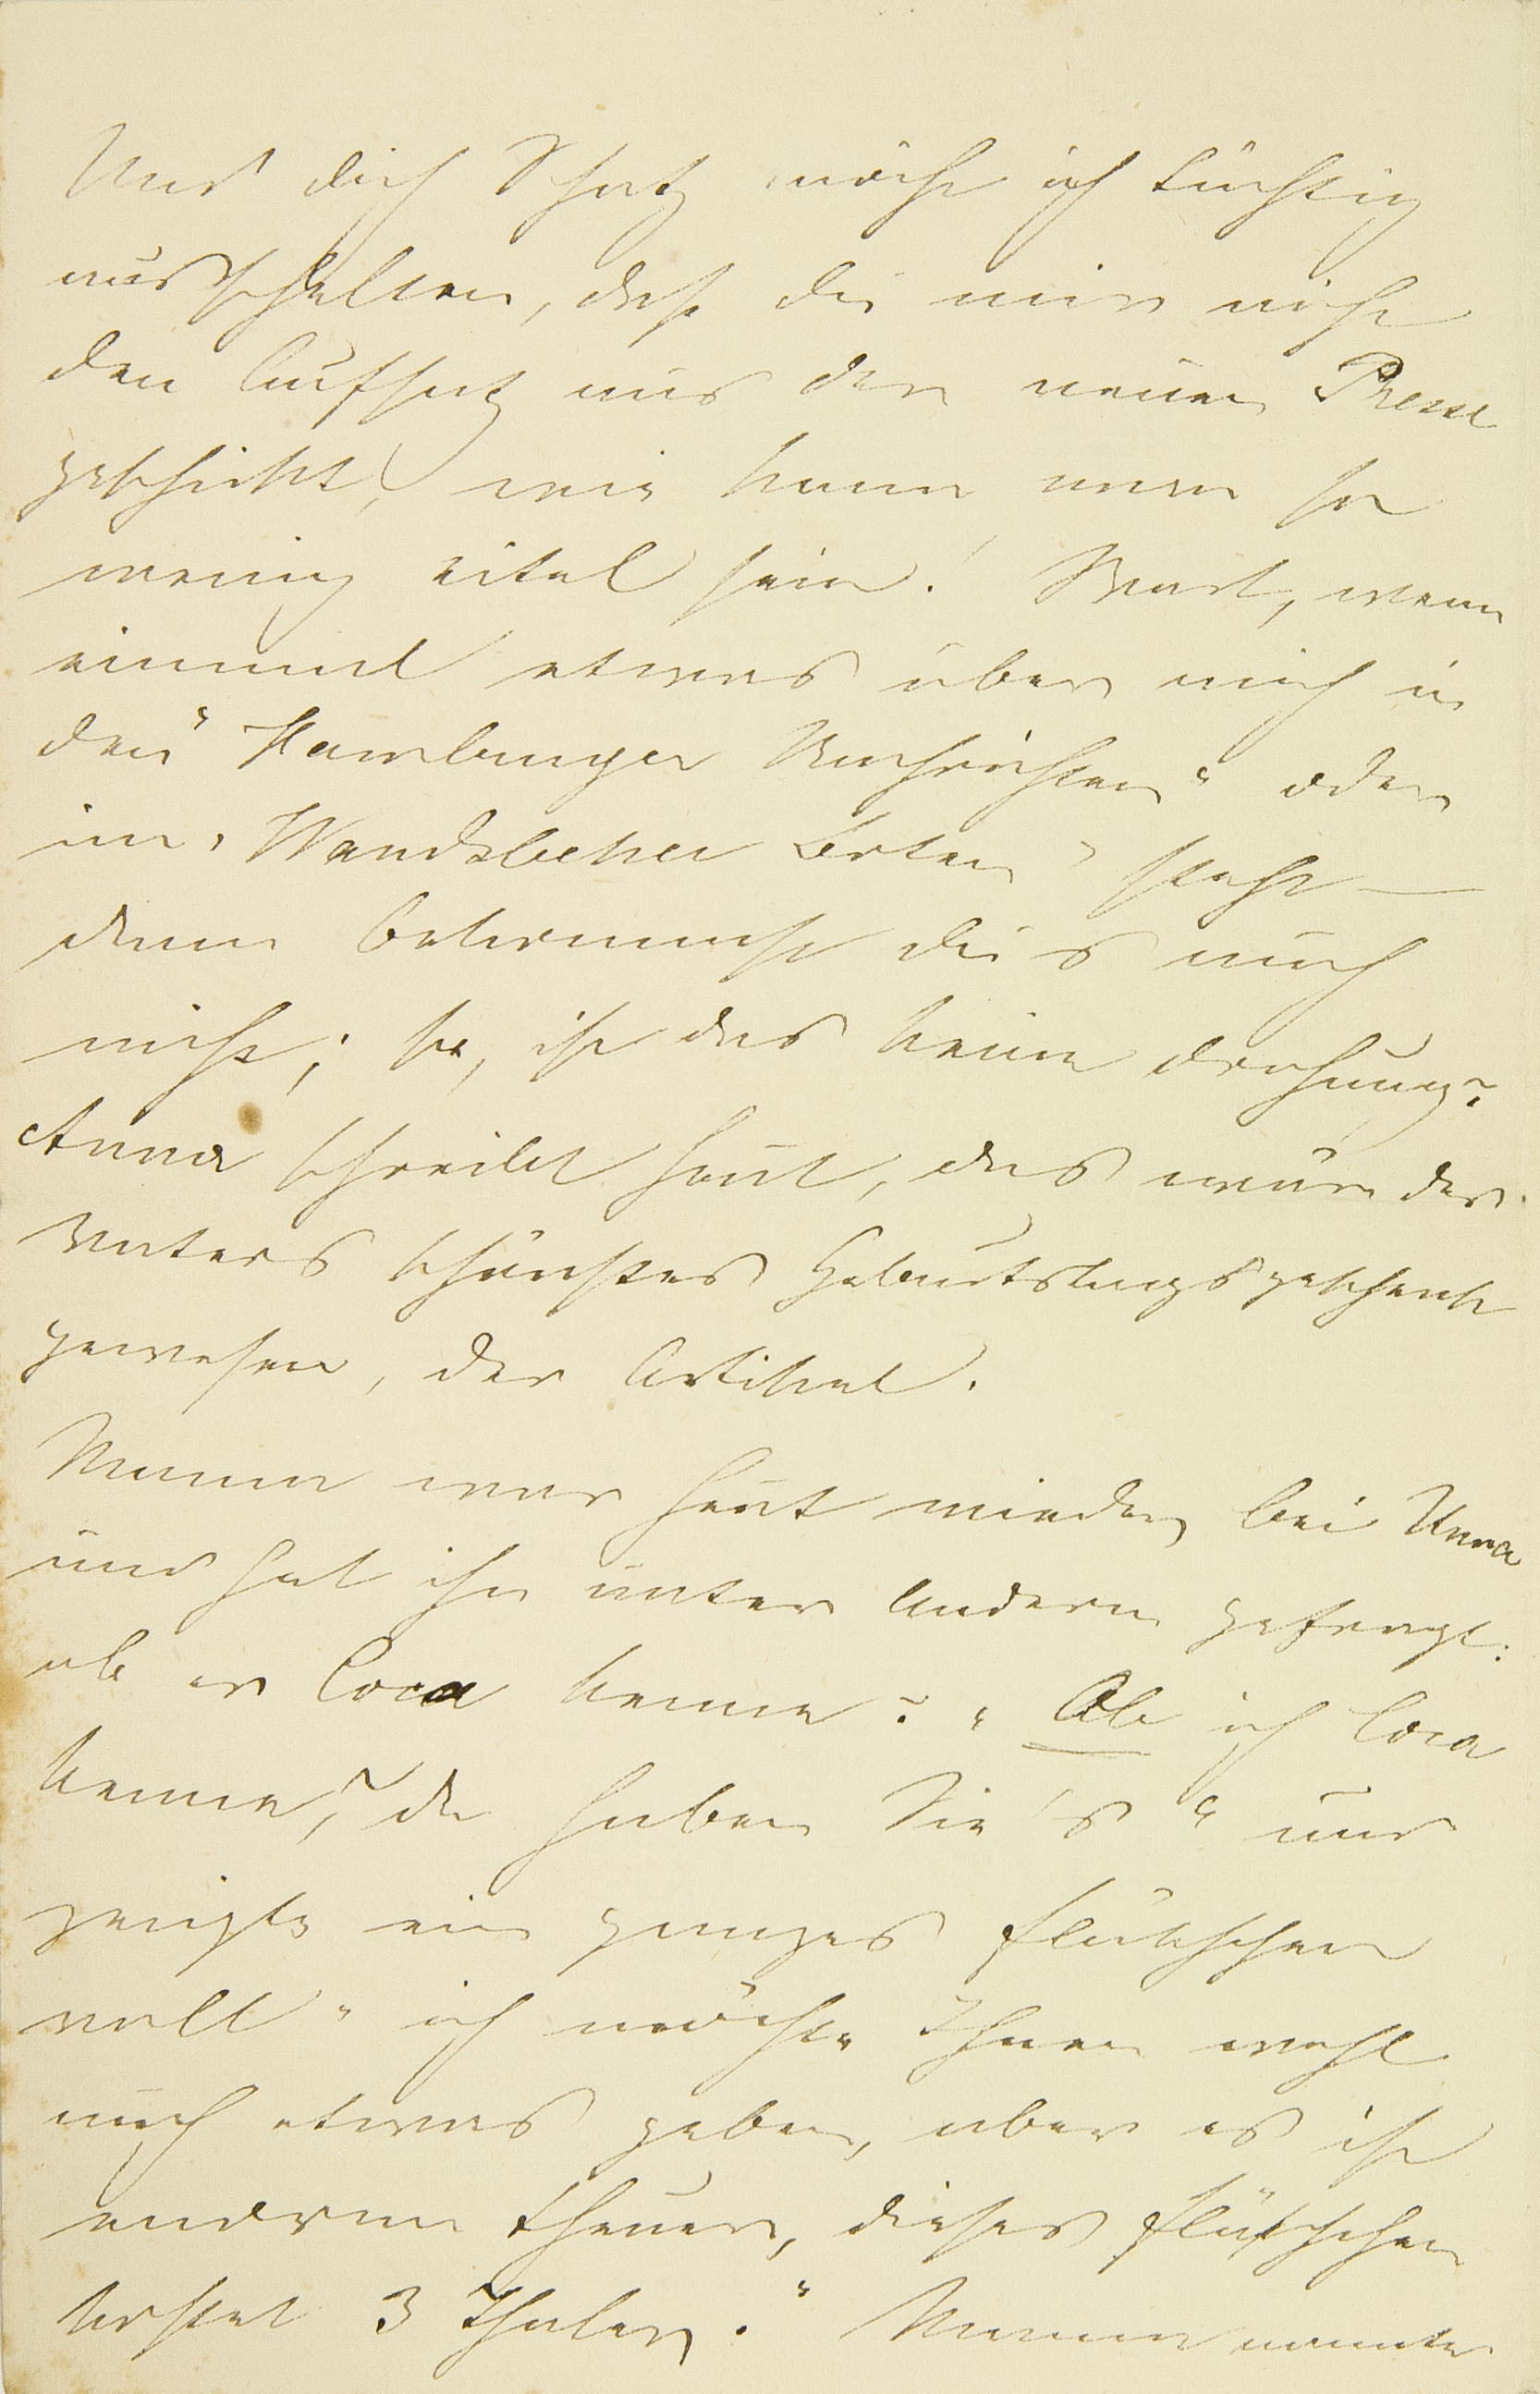 Und dich Schatz möchte ich tüchtig
ausschelten, daß du mir nicht
den Aufsatz aus der neuen Presse
geschickt, wie kann man so
wenig eitel sein! Wart, wenn
einmal etwas über mich in
den "Hamburger Nachrichten" oder
im "Wandsbeker Boten" steht —
dann bekommst du's auch
nicht; so, ist das keine Drohung?
Anna schreibt heut, das wäre des
Vaters schönstes Geburtstagsgeschenk
gewesen, der Artikel.
Mama war heut wieder bei Unna
und hat ihn unter Anderm gefragt:
ob er Coca kenne? "Ob ich Coca
kenne, da haben Sie's" und
zeigte ein ganzes Fläschchen
voll "ich möchte Ihnen wohl
auch etwas geben, aber es ist
enorm theuer, dieses Fläschchen
kostet 3 Thaler." Mama nannte